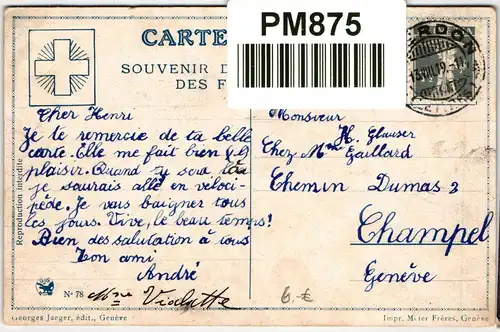 PM875
CARTE
SOUVENIR D
DES F
Cher Henri
Je te remercie de ta belle
carte. Elle me fait bien
plaisir. Quand
je saurais allé en véloci-
pède. Je vais baigner tous
les jours. Vive, le beau temps!
Bien des salutation à tous
Ton ami
André
Monsieur
H. Glauser
Chez Mme Gaillard
Chemin Dumas 2
Champel
Genève
Reproduction interdite
Nº 78
Mme Violette
6.-€
Georges Jaeger, édit., Genève
Impr. Meier Frères, Genève